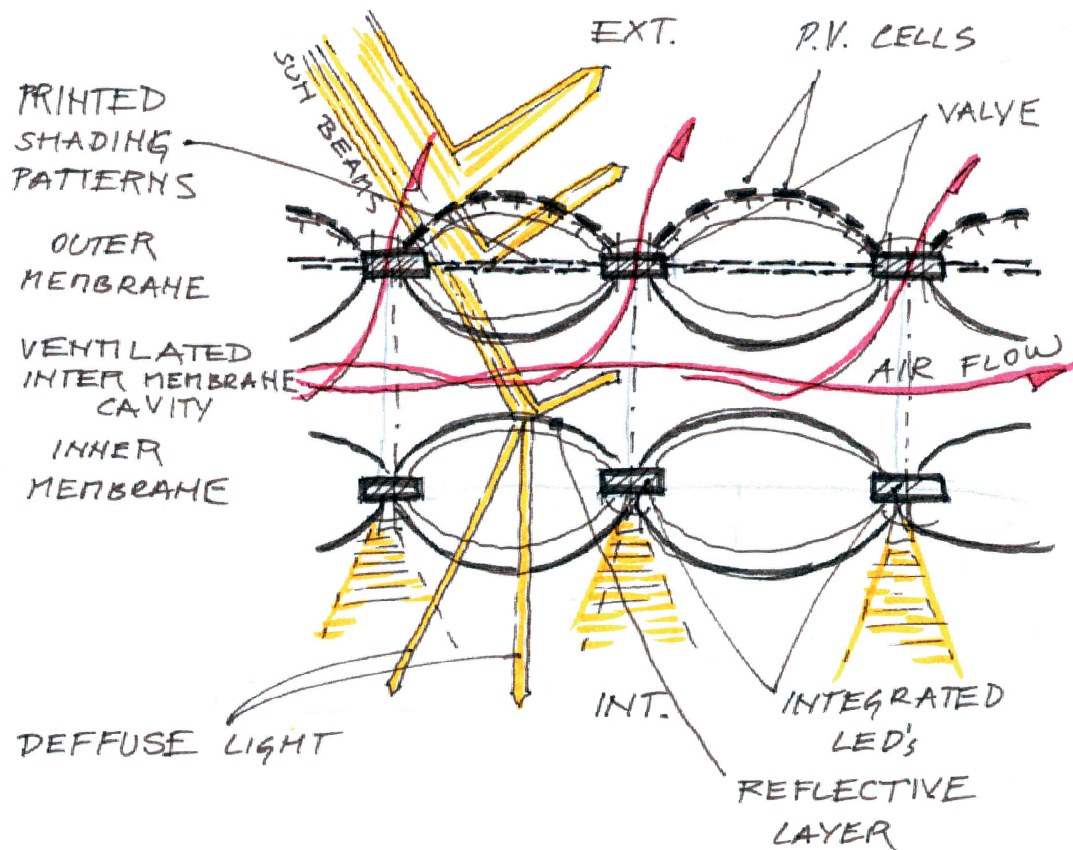 EXT.
P.V. CELLS
SUN BEAMS
PRINTED
SHADING
PATTERNS
VALVE
OUTER
MEMBRANE
VENTILATED
INTER MEMBRANE
CAVITY
AIR FLOW
INNER
MEMBRANE
INT.
INTEGRATED
LED's
DEFFUSE LIGHT
REFLECTIVE
LAYER